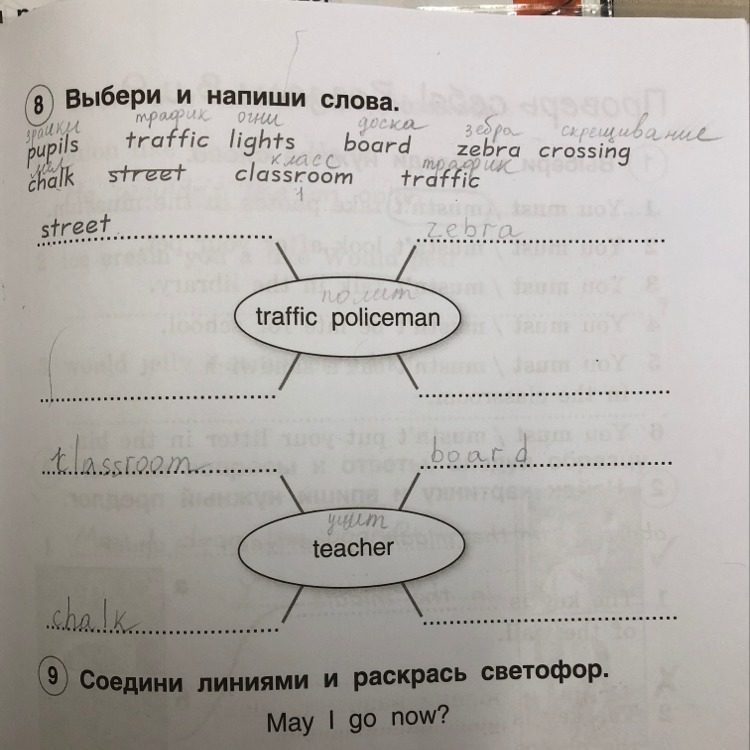 8 Выбери и напиши слова.
зрачки трафик огни доска зебра скрещивание
pupils traffic lights board zebra crossing
мел класс трафик
chalk street classroom traffic
1
street zebra
полит
traffic policeman
classroom board
учит
teacher
chalk
9 Соедини линиями и раскрась светофор.
May I go now?